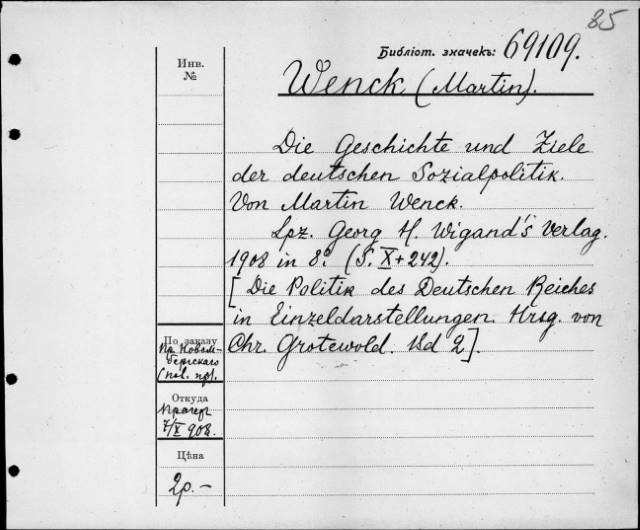 85
Библіот. значекъ: 69109.
Инв.
№
Wenck (Martin).
Die Geschichte und Ziele
der deutschen Sozialpolitik.
Von Martin Wenck.
Lpz. Georg H. Wigand's Verlag.
1908 in 8º. (S. X+242).
[Die Politik des Deutschen Reiches
in Einzeldarstellungen. Hrsg. von
Chr. Grotewold. Bd 2].
По заказу
Пр. Новом-
бергскаго
Откуда
Прагеръ
7/X 908.
Цѣна
2р.–